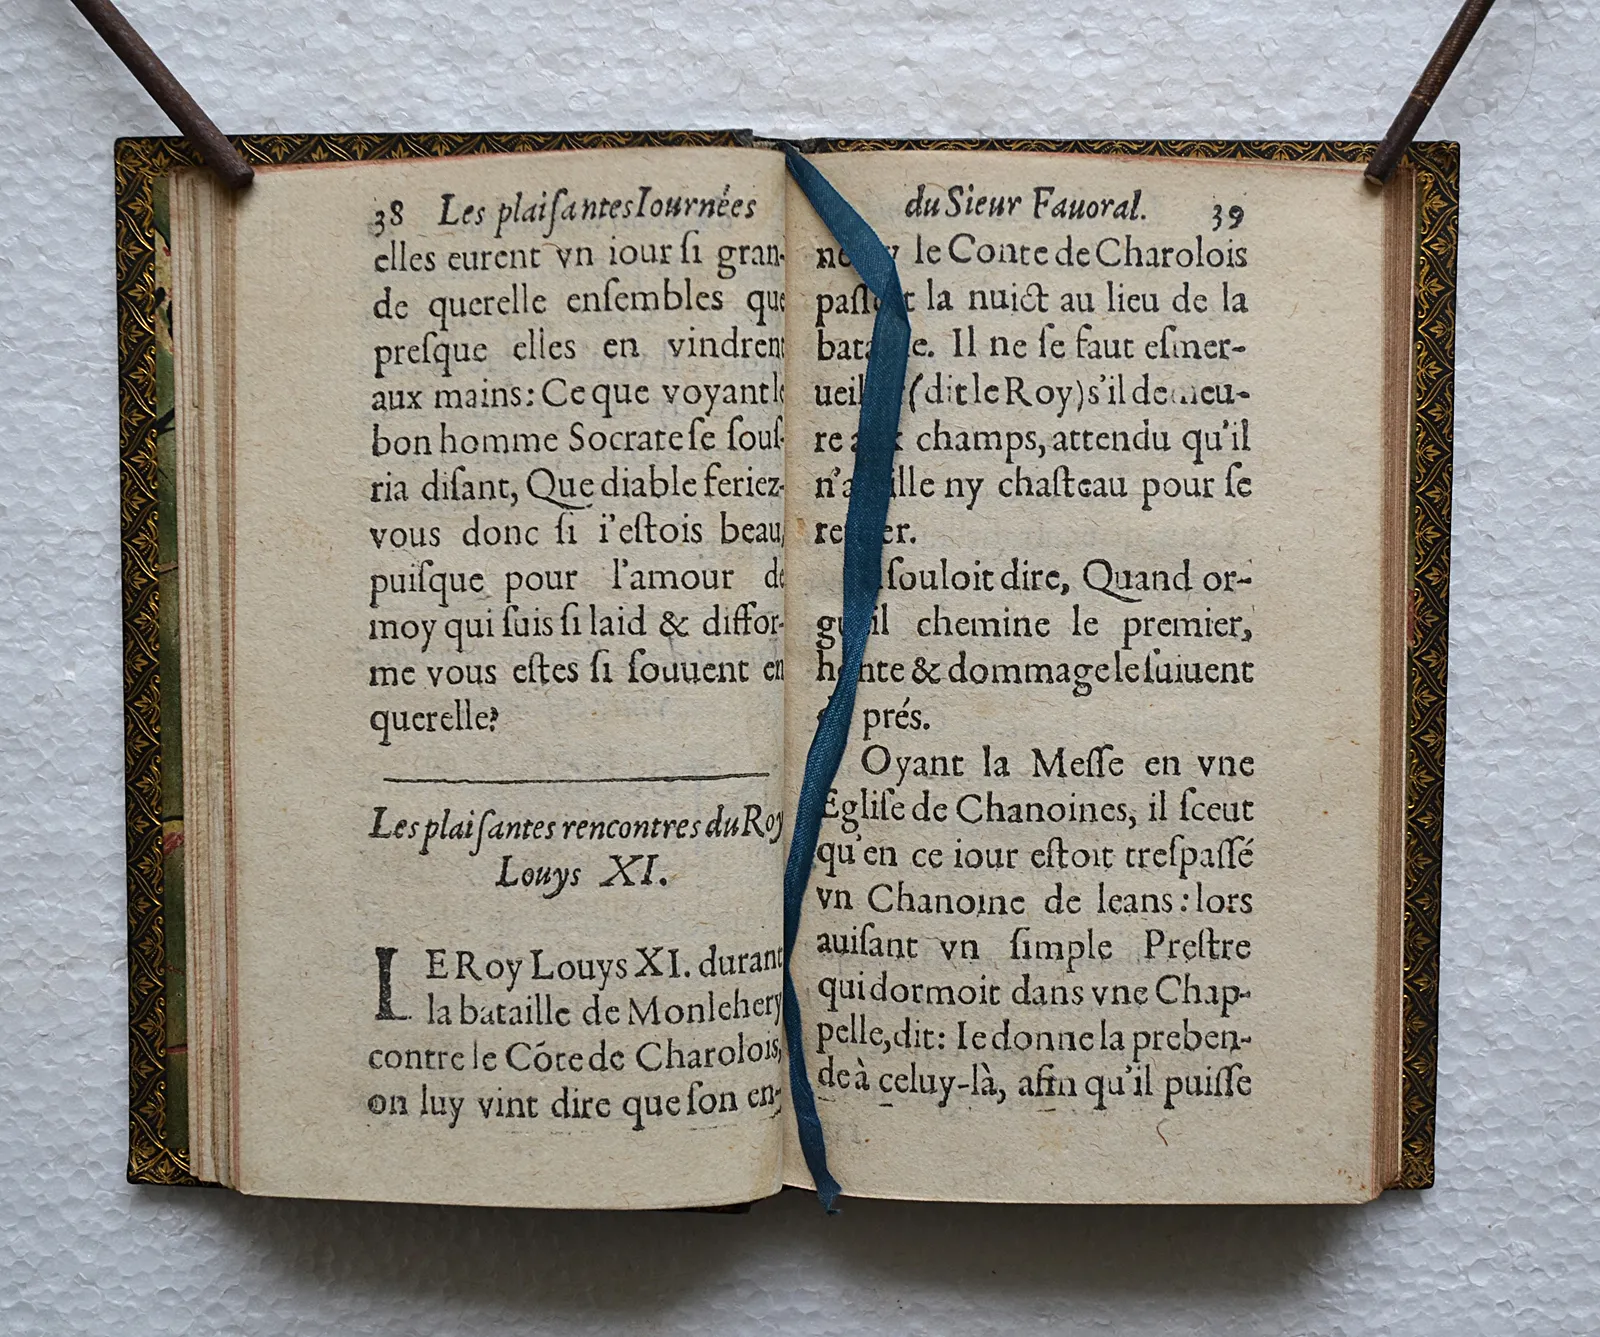 38 Les plaiſantes Iournées
elles eurent vn iour ſi gran-
de querelle enſembles que
preſque elles en vindrent
aux mains: Ce que voyant le
bon homme Socrate ſe ſouſ-
ria diſant, Que diable feriez-
vous donc ſi i'eſtois beau,
puiſque pour l'amour de
moy qui ſuis ſi laid & diffor-
me vous eſtes ſi ſouuent en
querelle?
Les plaiſantes rencontres du Roy
Louys XI.
LE Roy Louys XI. durant
la bataille de Monlehery
contre le Cóte de Charolois,
on luy vint dire que ſon en-
du Sieur Fauoral. 39
nemy le Conte de Charolois
paſſoit la nuict au lieu de la
bataille. Il ne ſe faut eſmer-
ueiller (dit le Roy) s'il demeu-
re aux champs, attendu qu'il
n'a ville ny chaſteau pour ſe
retirer.
Il ſouloit dire, Quand or-
gueil chemine le premier,
honte & dommage le ſuiuent
de prés.
Oyant la Meſſe en vne
Egliſe de Chanoines, il ſceut
qu'en ce iour eſtoit treſpaſſé
vn Chanoine de leans: lors
auiſant vn ſimple Preſtre
qui dormoit dans vne Chap-
pelle, dit: Ie donne la preben-
de à celuy-là, afin qu'il puiſſe